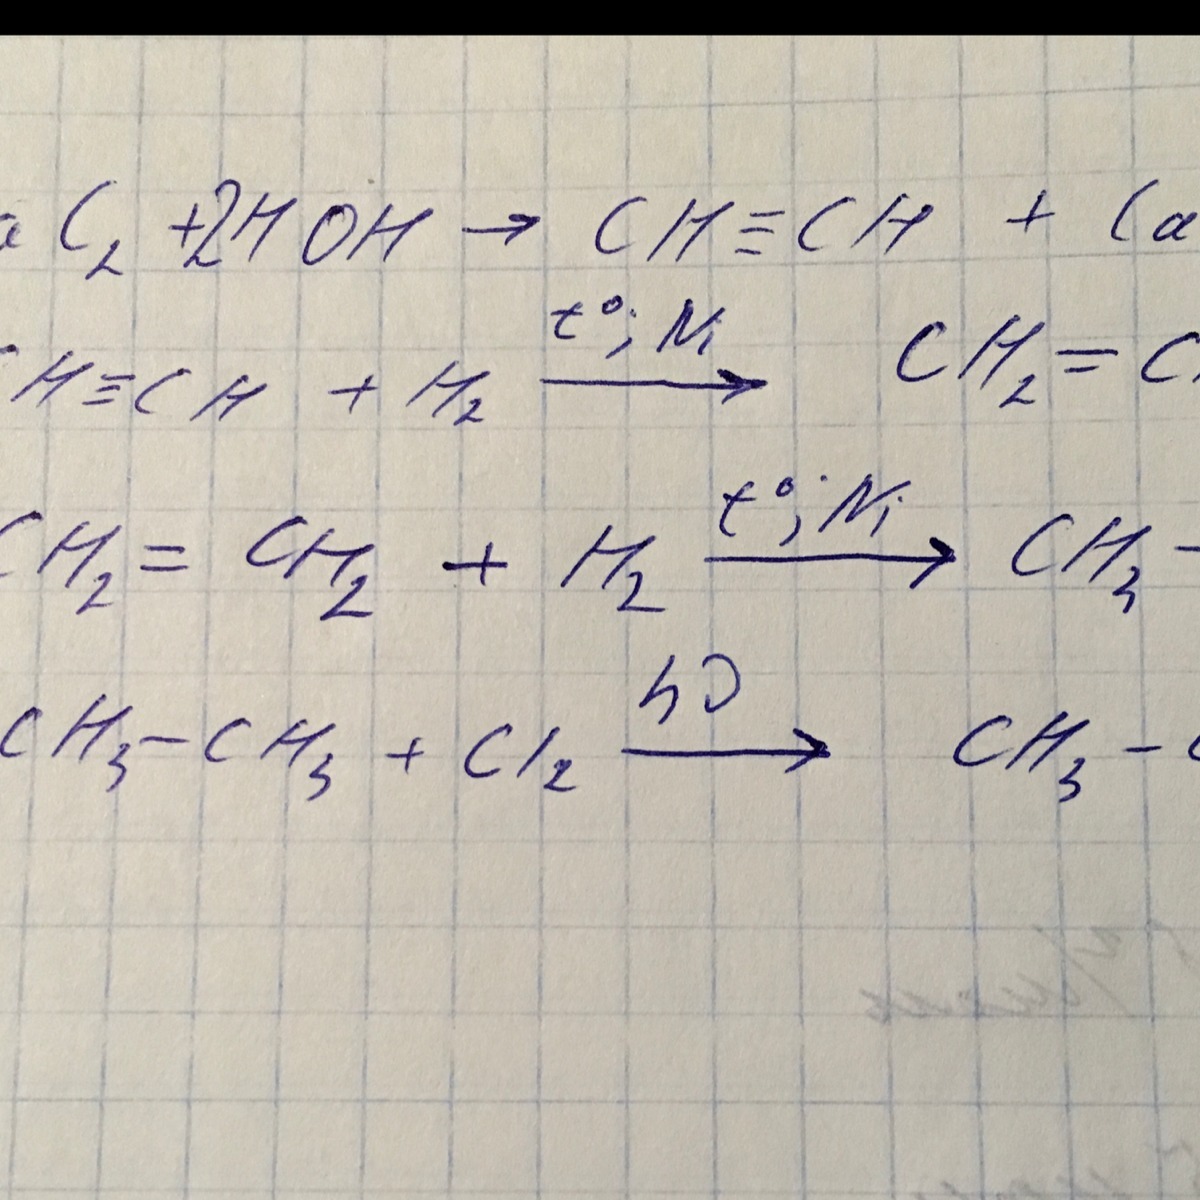 a C₂ + 2HOH → CH≡CH + Ca
CH≡CH + H₂ t°; Ni → CH₂ = C
CH₂ = CH₂ + H₂ t°; Ni → CH₃ –
CH₃ – CH₃ + Cl₂ hν → CH₃ –